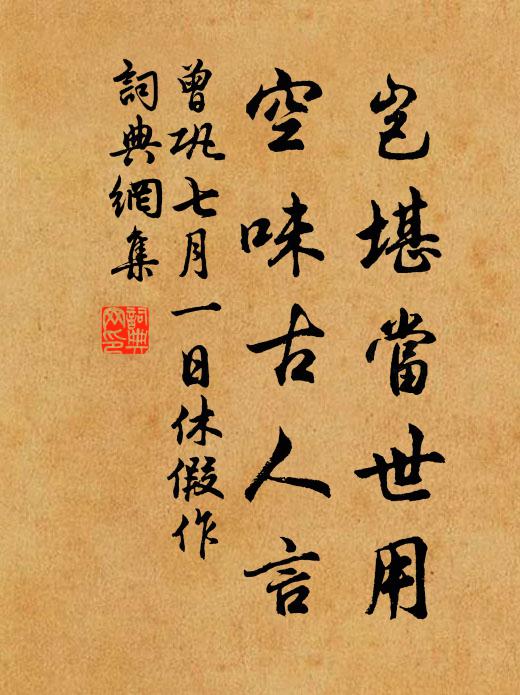 豈堪當世用
空味古人言
曾巩七月一日休假作
詞典網集
詞典网印